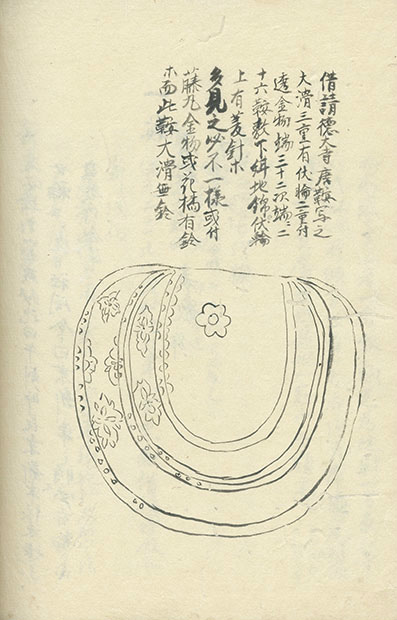 借請徳大寺唐鞍写之
大滑三重一有伏輪二重付
透金物端三十二次端二
十六鞍敷下緋地錦伏輪
上有菱針ホ
多見之必不一様或付
藤丸金物或花橘有鈴
ホ而此鞍大滑無鈴